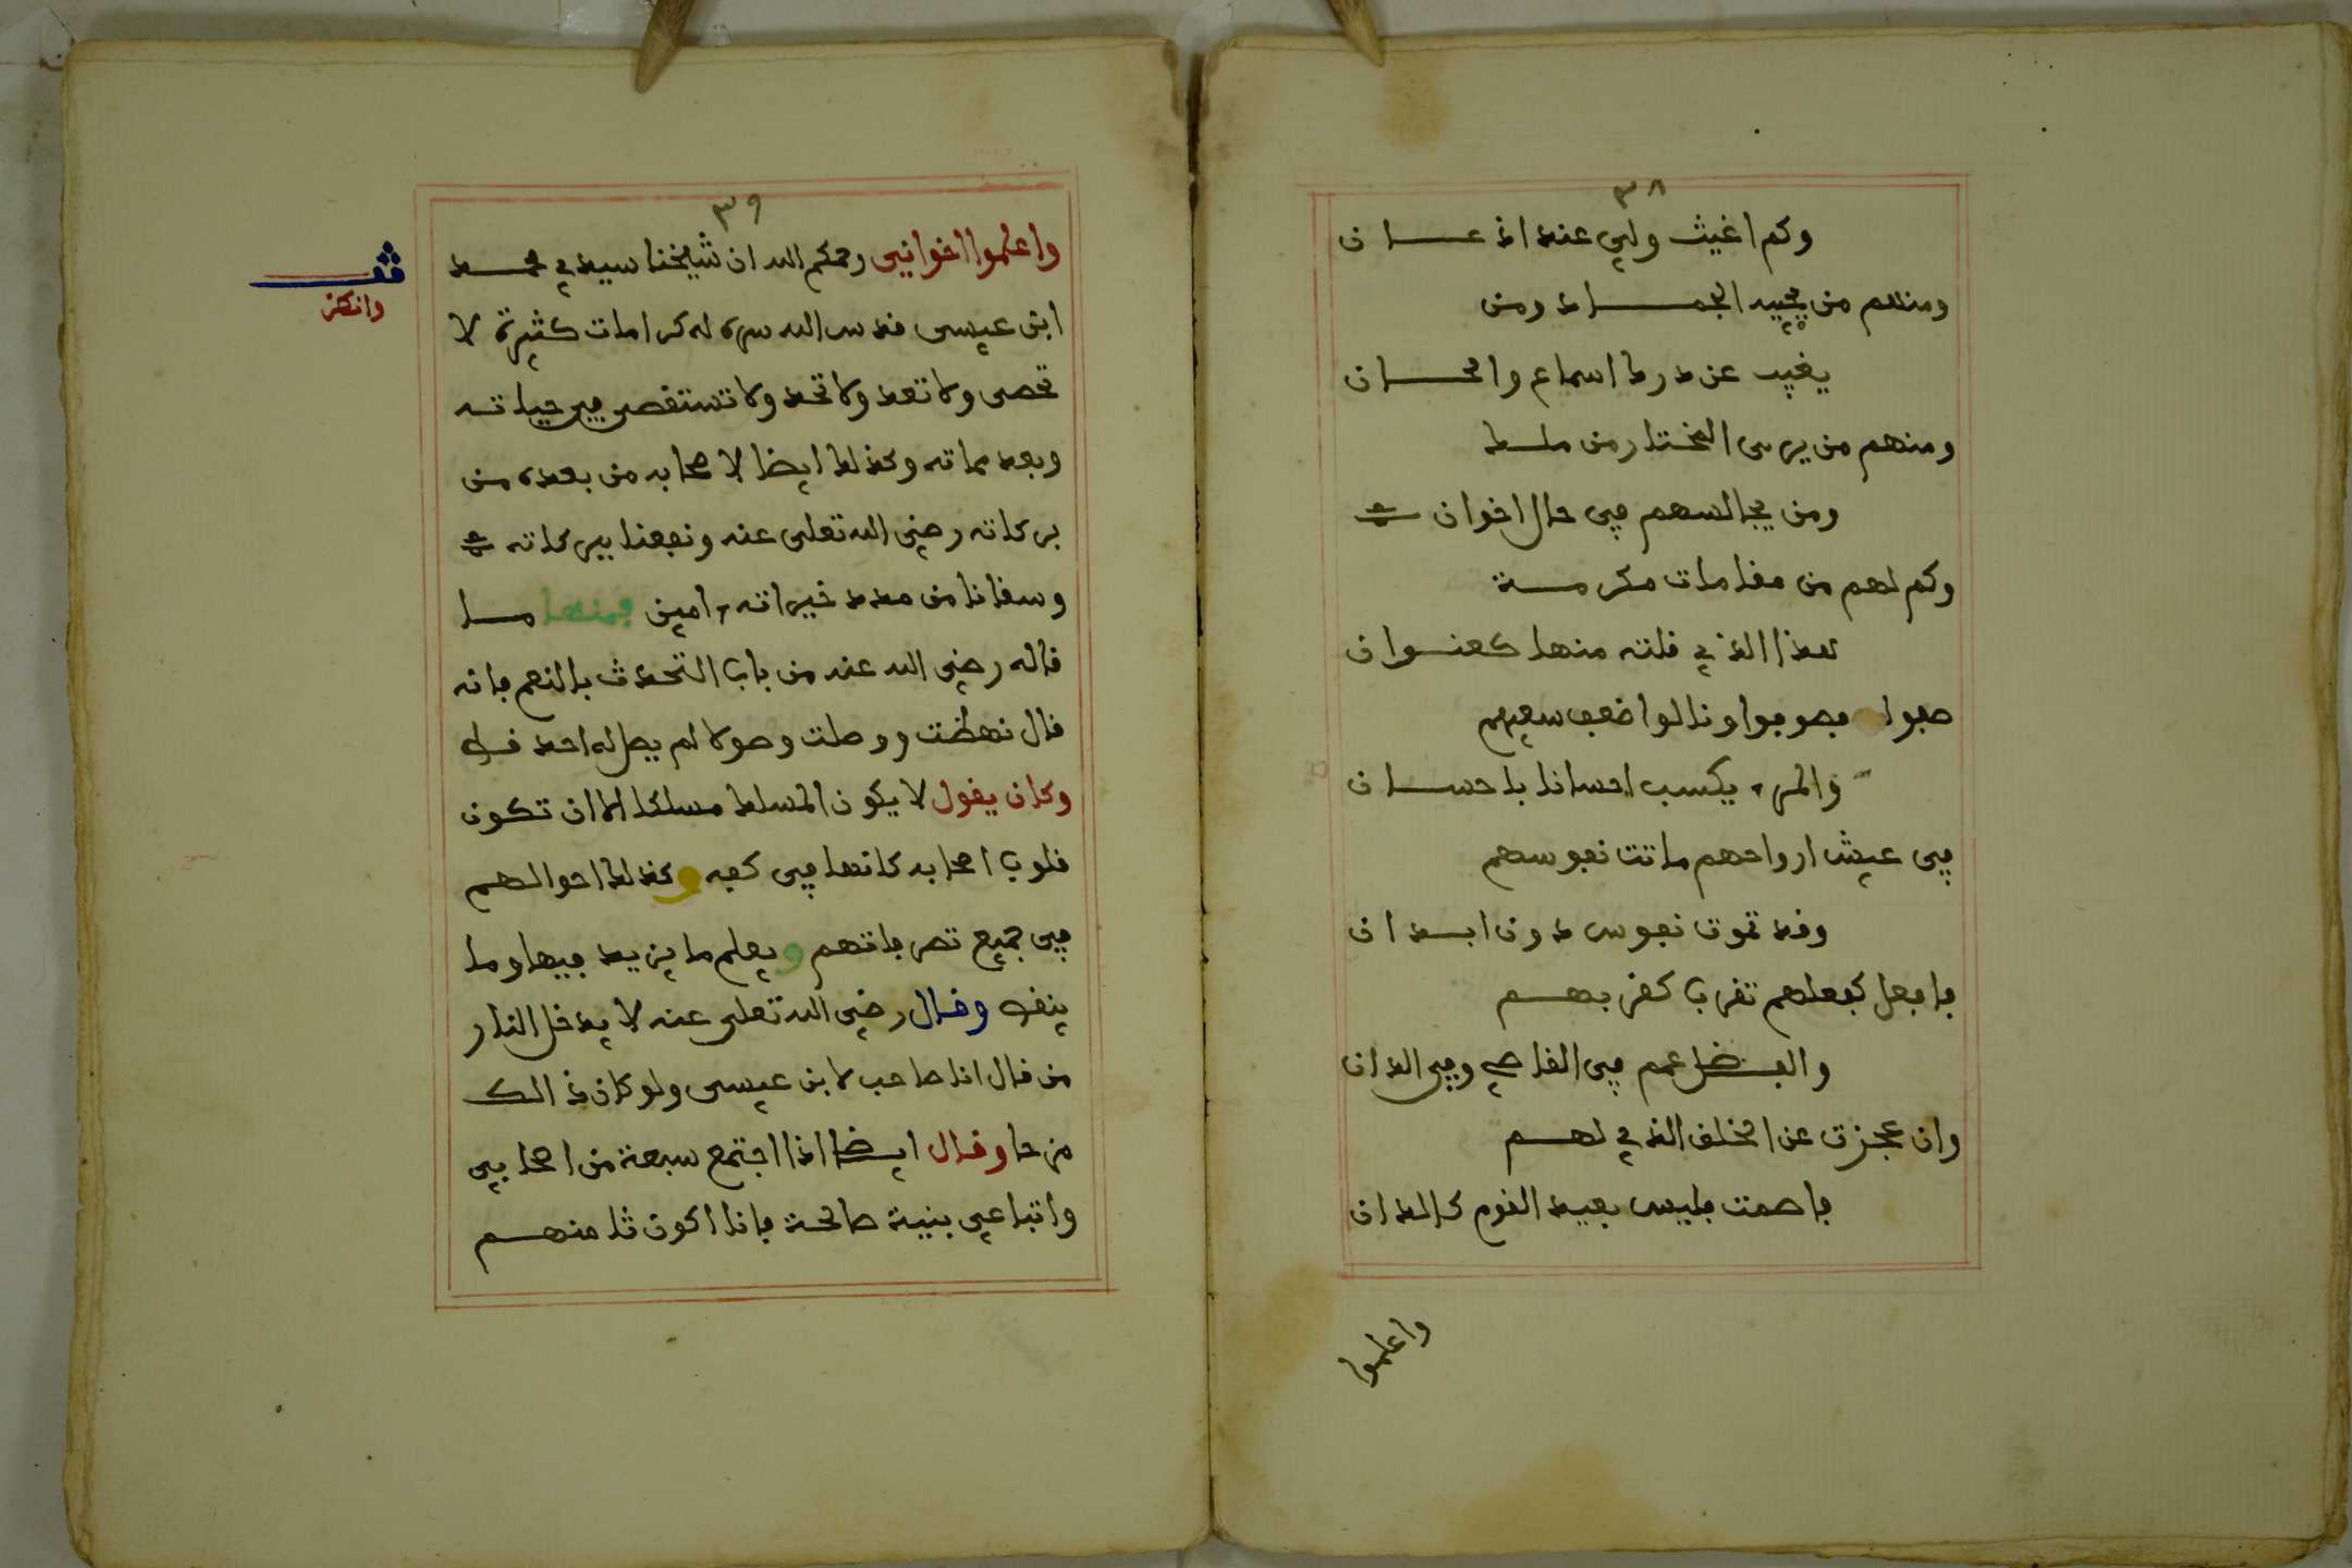 ٣٨
وكم اغيث ولي عند اذعان
ومنهم من يجيبه الجماد ومن
يغيب عن درك اسماع والحان
ومنهم من يرى المختار من ملك
ومن يجالسهم في حال اخوان
وكم لهم من مقامات مكرمة
هذا الذي قلته منها كعنوان
صفوا فصوفوا ونالوا ضعف سعيهم
والمرء يكسب احسانا باحسان
في عيش ارواحهم ماتت نفوسهم
وقد تموت نفوس دون ابدان
فافعل كفعلهم تقرب كقربهم
والفضل عمم في القاصي وفي الدان
وان عجزت عن الخلق الذي لهم
فاصمت فليس بعيد القوم كالدان
واعلموا
٣٩
واعلموا اخواني رحمكم الله ان شيخنا سيدي محمد
ابن عيسى قدس الله سره له كرامات كثيرة لا
تحصى ولا تعد ولا تحد ولا تستقصى في حياته
وبعد مماته وكذلك ايضا لاصحابه من بعده من
بركاته رضي الله تعلى عنه ونفعنا ببركاته
وسقانا من مدد خيراته ءامين فمنها ما
قاله رضي الله عنه من باب التحدث بالنعم فانه
قال نهضت ووصلت وصولا لم يصل له احد قط
وكان يقول لا يكون المسلك مسلكا الا ان تكون
قلوب اصحابه كانها في كفه وكذلك احوالهم
في جميع تصرفاتهم ويعلم ما يزيد فيها وما
ينقص وقال رضي الله تعلى عنه لا يدخل النار
من قال انا صاحب لابن عيسى ولو كان ذالك
مزحا وقال ايضا اذا اجتمع سبعة من اصحابي
واتباعي بنية صالحة فانا اكون ثامنهم
قف
وانظر